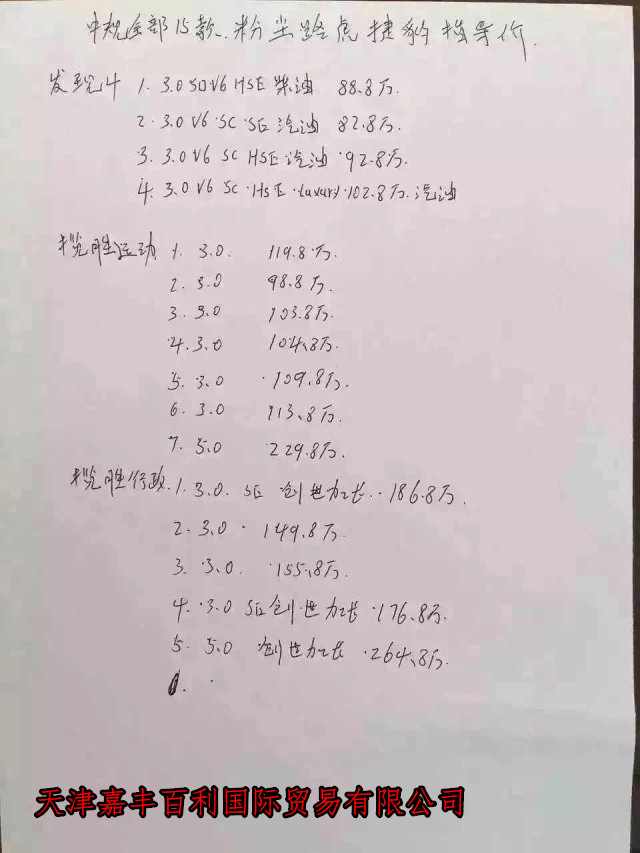 中规全部15款.粉尘路虎捷豹指导价.
发现4 1. 3.0 SDV6 HSE 柴油 88.8万.
2. 3.0 V6 SC SE 汽油 82.8万.
3. 3.0 V6 SC HSE 汽油 92.8万.
4. 3.0 V6 SC HSE Luxury 102.8万.汽油
揽胜运动 1. 3.0. 119.8万.
2. 3.0 98.8万.
3. 3.0 103.8万.
4. 3.0 104.8万.
5. 3.0 109.8万.
6. 3.0 113.8万.
7. 5.0 229.8万.
揽胜行政. 1. 3.0. SE 创世加长..186.8万.
2. 3.0 149.8万.
3. 3.0. 155.8万.
4. 3.0 SE 创世加长 176.8万.
5. 5.0 创世加长 264.8万.
天津嘉丰百利国际贸易有限公司